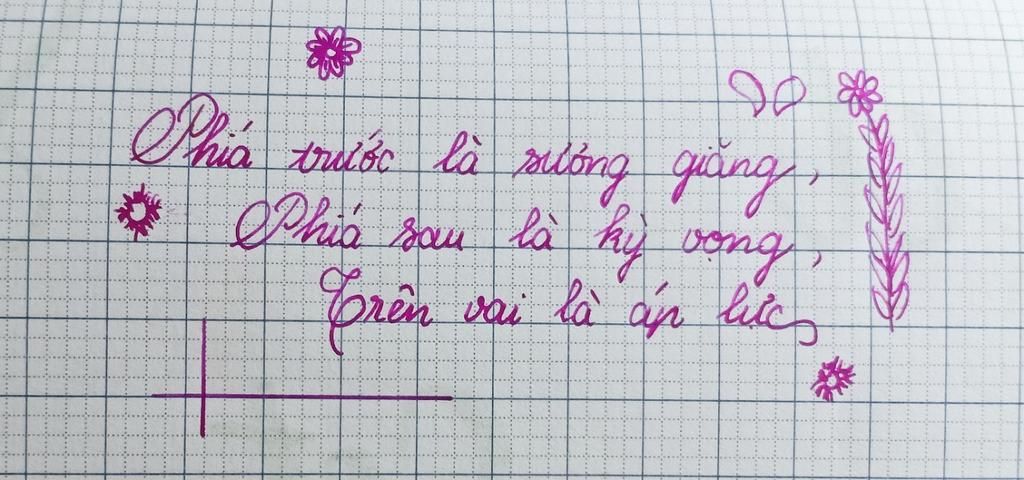 Phía trước là sương giăng,
Phía sau là kỳ vọng,
Trên vai là áp lực